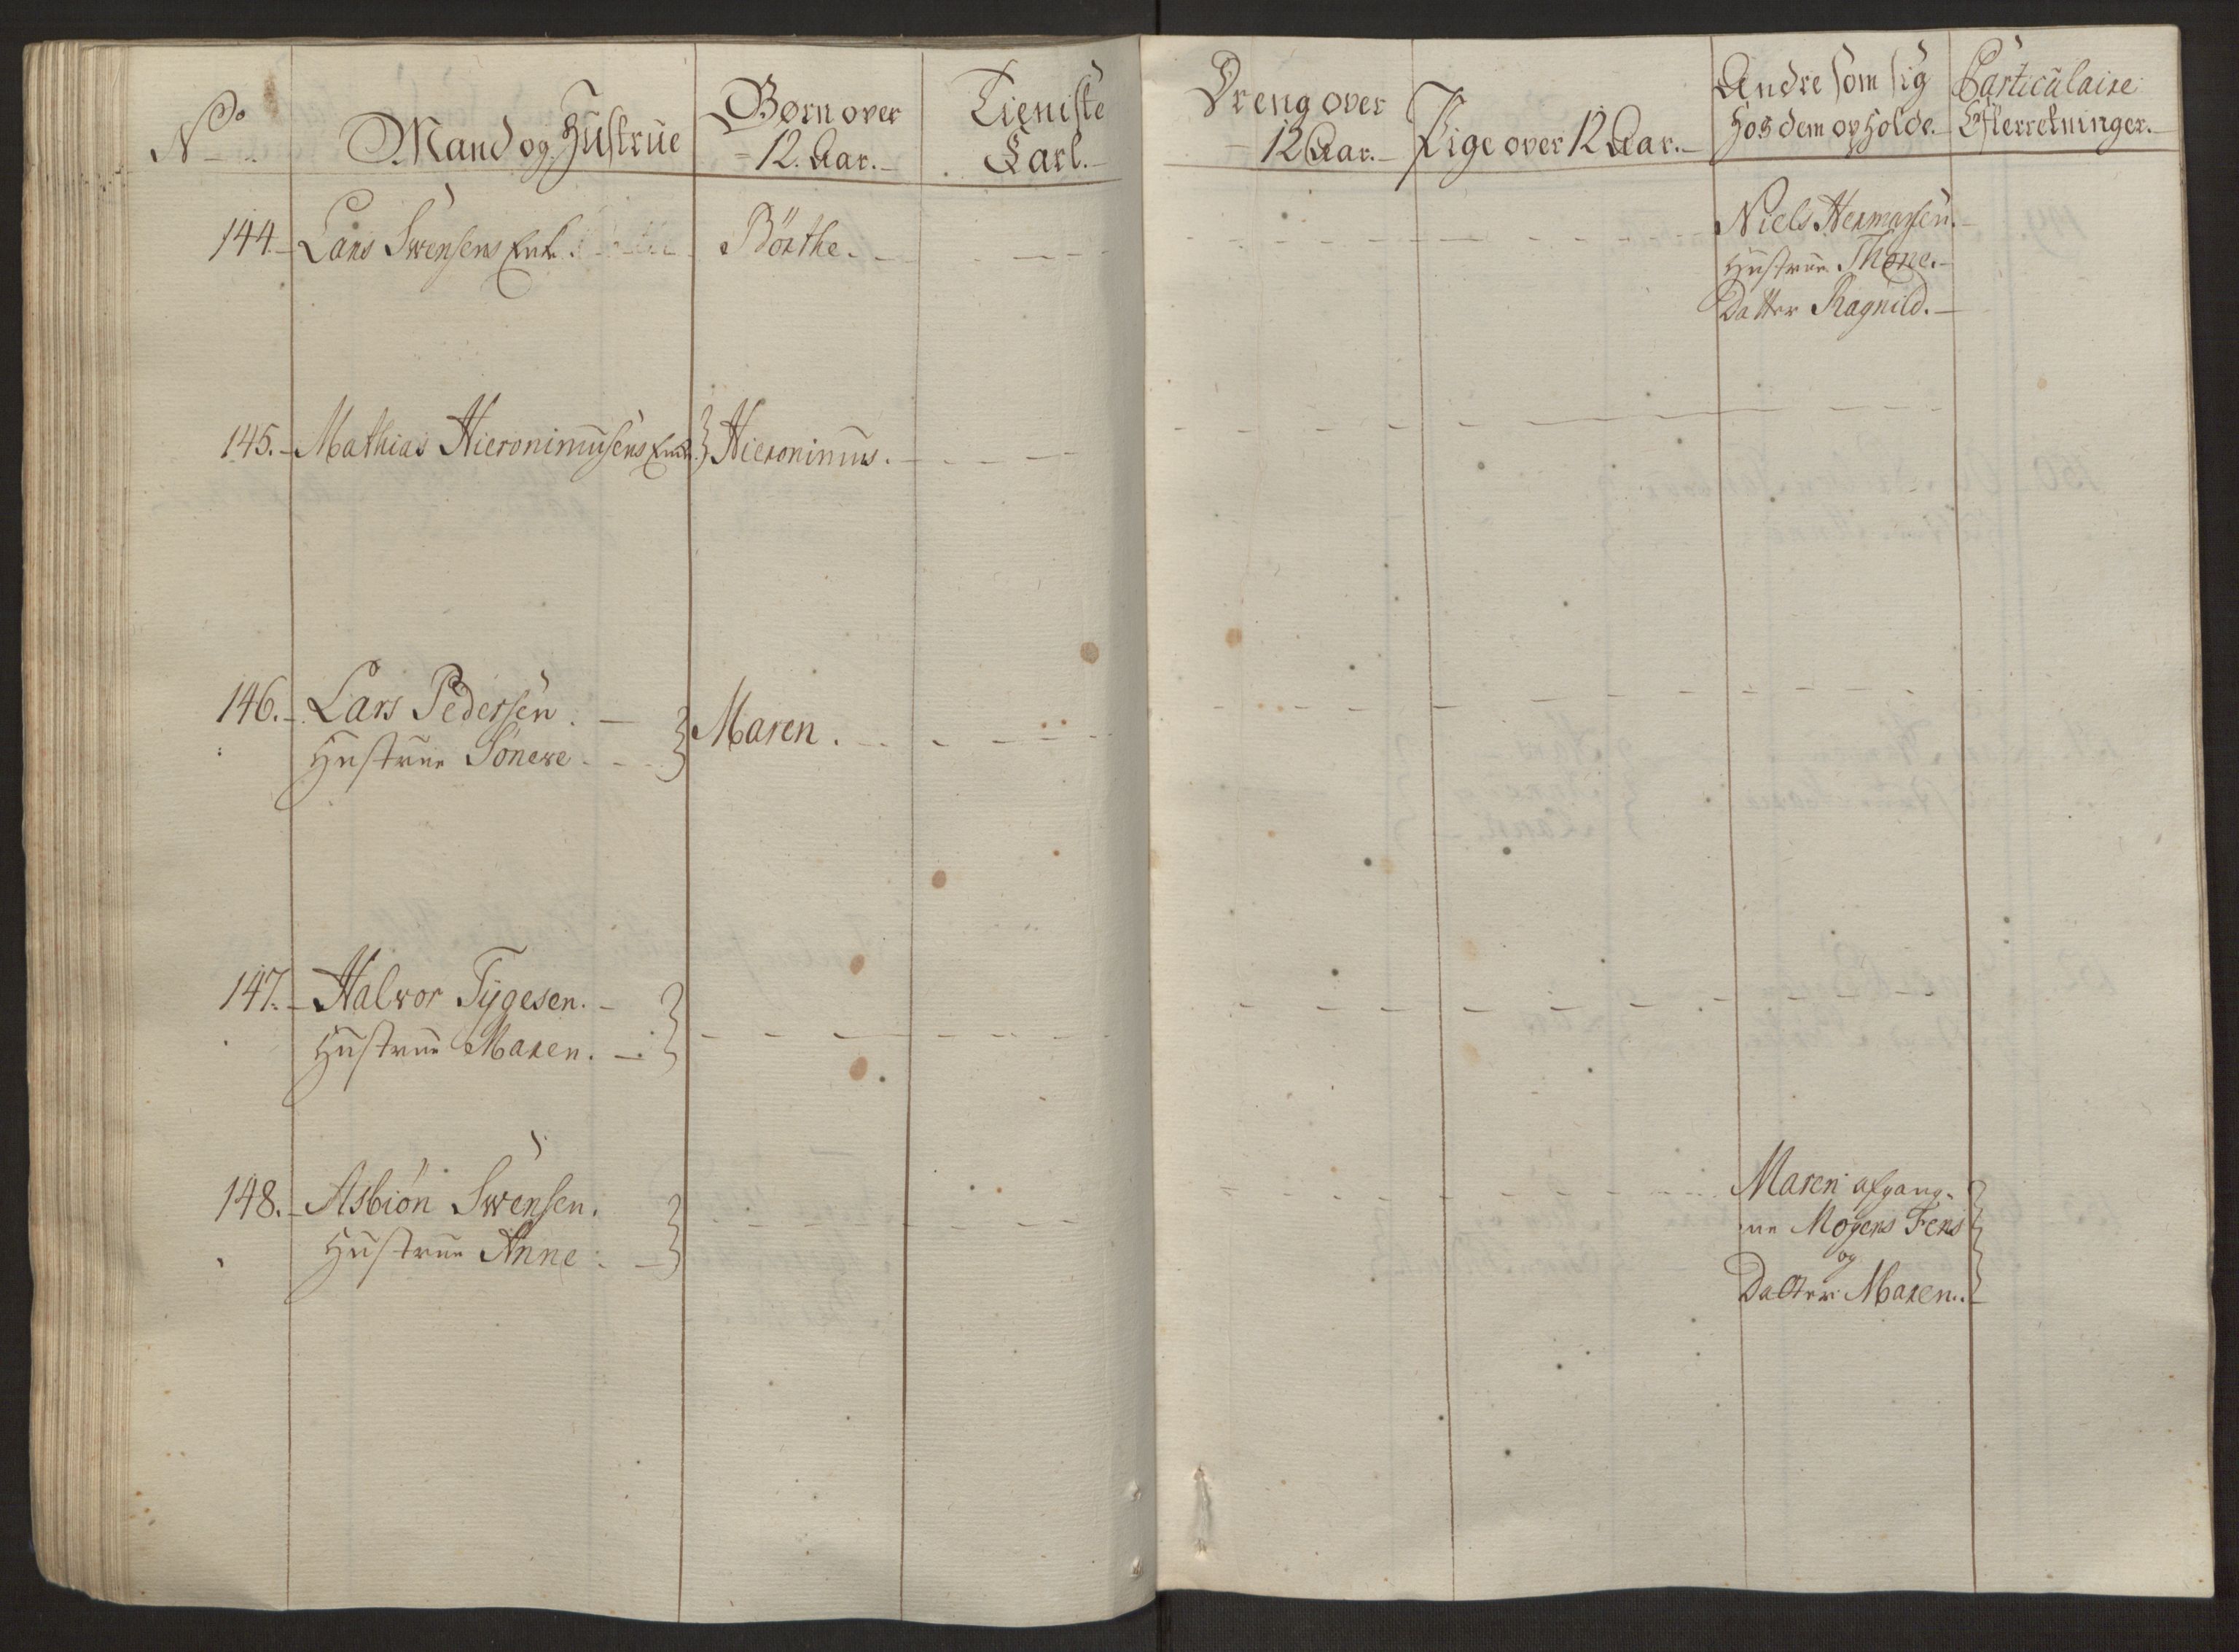 No
Mand og Hustrue
Børn over
12. Aar.
Tieniste
Karl.
Dreng over
12 Aar.
Pige over 12 Aar.
Andre som sig
hos dem opholde.
Particulaire
Efterretninger.
144. Lars Swensens Enk. Börthe.
Niels Hermansen.
Hustrue Thone.
Datter Ragnild.
145. Mathias Hieronimusens Enk. } Hieronimus.
146. Lars Pedersen.
Hustrue Sönewe } Maren.
147. Halvor Tygesen.
Hustrue Maren. }
148. Asbiön Swensen.
Hustrue Anne }
Maren afgang-
ne Mogens Fens
og
Datter Maren.